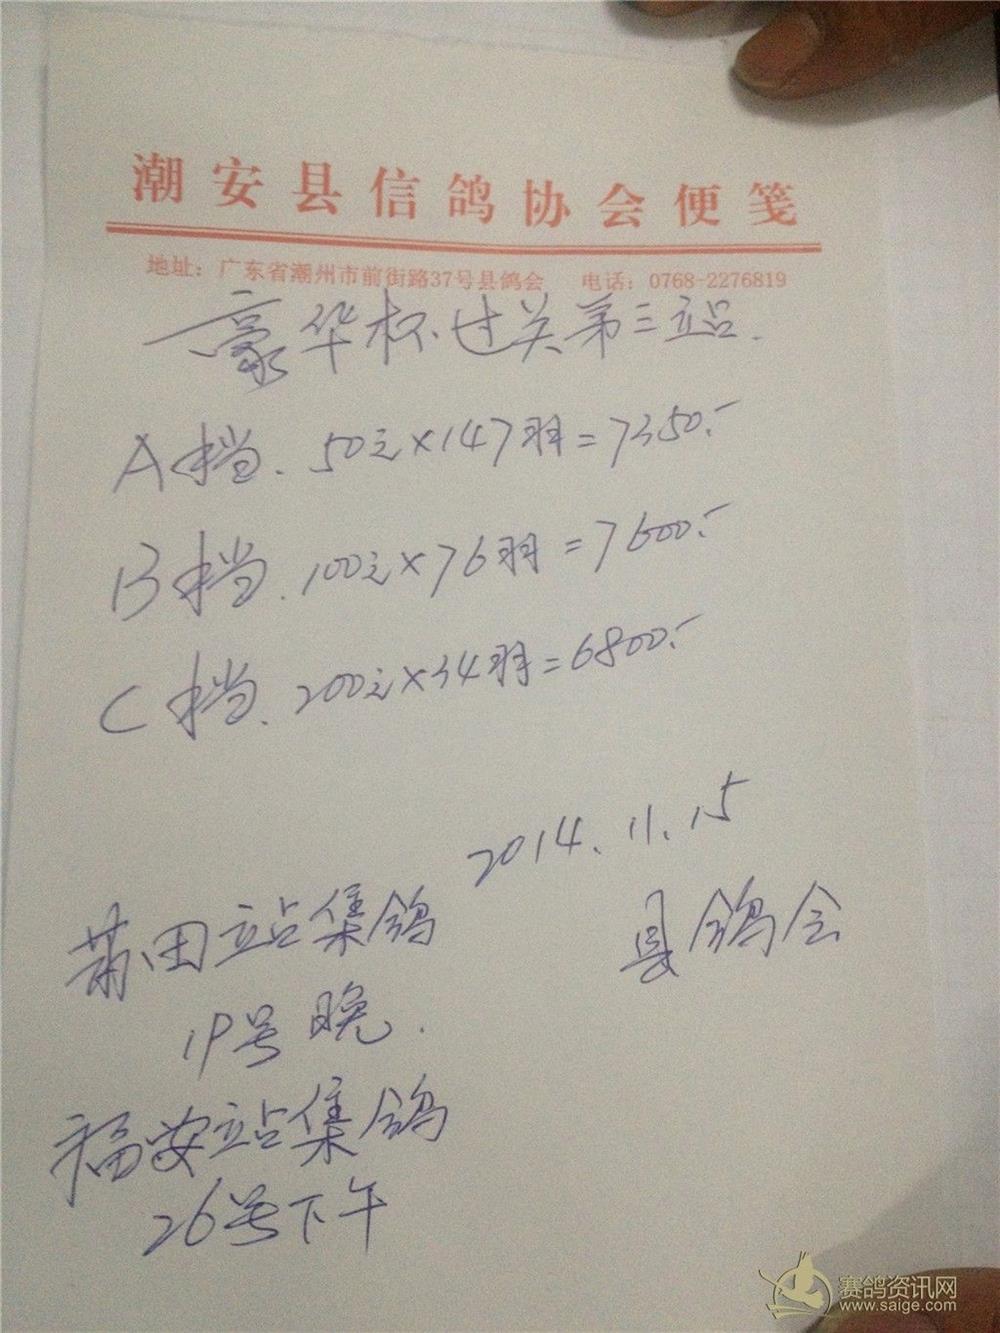 潮安县信鸽协会便笺
地址：广东省潮州市前街路37号县鸽会 电话：0768-2276819
豪华杯.过关第三站.
A档.50元×147羽=7350.-
B档.100元×76羽=7600.-
C档.200元×34羽=6800.-
2014.11.15
县鸽会
莆田站集鸽
19号晚.
福安站集鸽
26号下午
赛鸽资讯网
www.saige.com